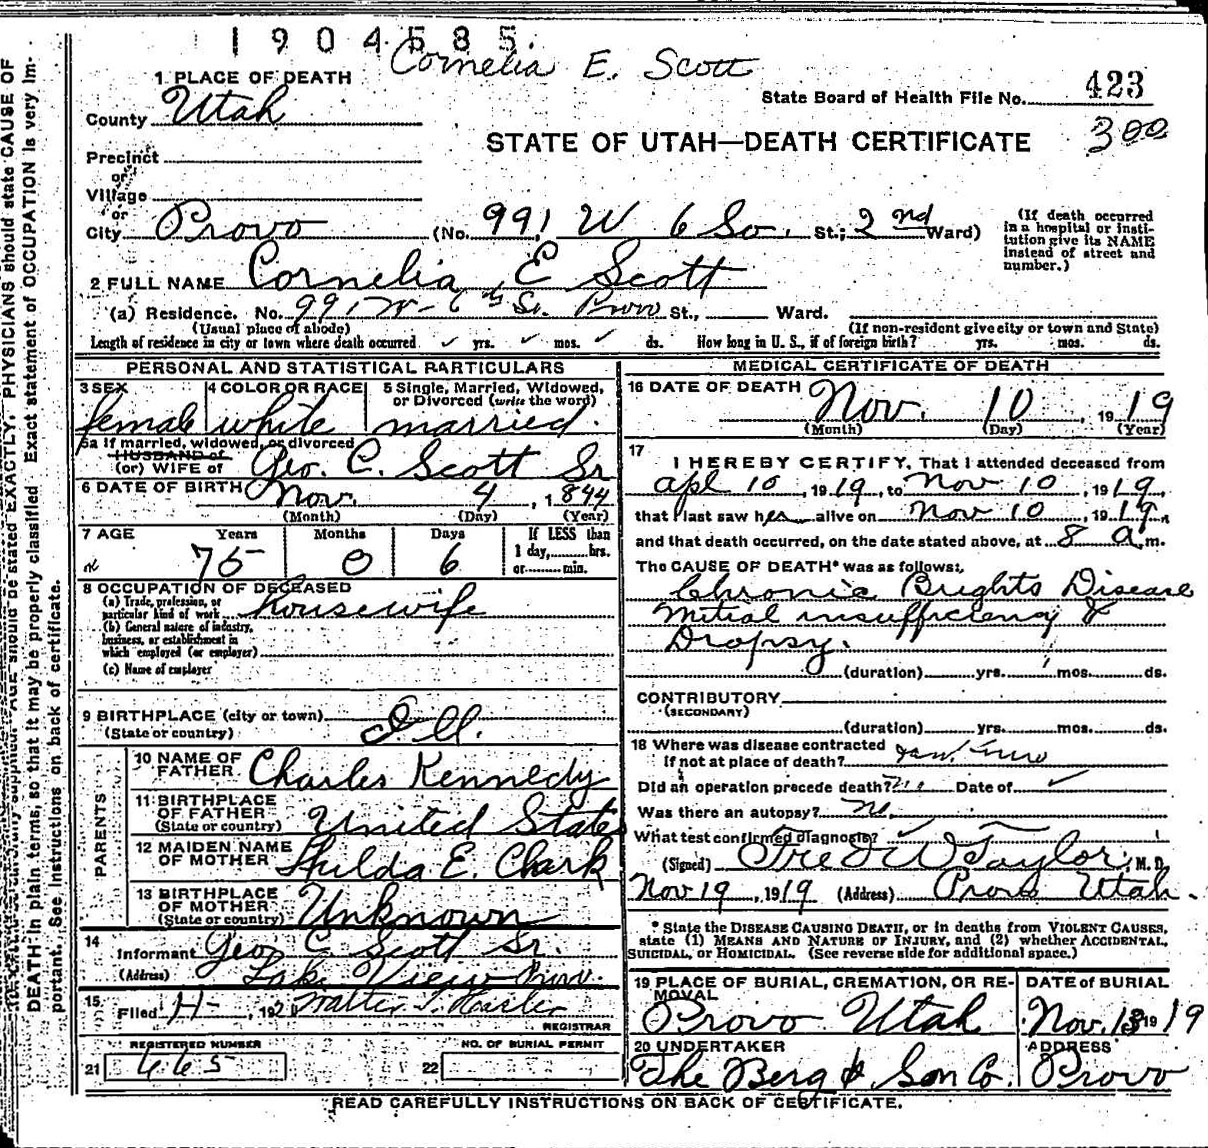 1904585.
Cornelia E. Scott
1 PLACE OF DEATH
State Board of Health File No. 423
County Utah
STATE OF UTAH—DEATH CERTIFICATE
3 00
Precinct
or
Village
or
City Provo (No. 991 W 6 So. St.; 2nd Ward)
(If death occurred in a hospital or institution give its NAME instead of street and number.)
2 FULL NAME Cornelia E Scott
(a) Residence. No. 991 W - 6 So. Provo St., Ward.
(Usual place of abode) (If non-resident give city or town and State)
Length of residence in city or town where death occurred yrs. mos. ds. How long in U. S., if of foreign birth? yrs. mos. ds.
PERSONAL AND STATISTICAL PARTICULARS
3 SEX 4 COLOR OR RACE 5 Single, Married, Widowed, or Divorced (write the word)
female white married.
5a If married, widowed, or divorced
HUSBAND of
(or) WIFE of Geo. C. Scott Sr
6 DATE OF BIRTH Nov. 4, 1844
(Month) (Day) (Year)
7 AGE Years Months Days If LESS than
1 day, hrs.
or min.
75 0 6
8 OCCUPATION OF DECEASED
(a) Trade, profession, or particular kind of work housewife
(b) General nature of industry, business, or establishment in which employed (or employer)
(c) Name of employer
9 BIRTHPLACE (city or town)
(State or country) Ill.
PARENTS
10 NAME OF FATHER Charles Kennedy
11 BIRTHPLACE OF FATHER (State or country) United States
12 MAIDEN NAME OF MOTHER Hulda E. Clark
13 BIRTHPLACE OF MOTHER (State or country) Unknown
14
Informant Geo C Scott Sr.
(Address) Lake View Provo.
15
Filed H-, 192
REGISTRAR
REGISTERED NUMBER NO. OF BURIAL PERMIT
21 665 22
MEDICAL CERTIFICATE OF DEATH
16 DATE OF DEATH Nov. 10, 1919
(Month) (Day) (Year)
17
I HEREBY CERTIFY, That I attended deceased from
Apl 10, 1919, to Nov 10, 1919,
that I last saw her alive on Nov 10, 1919,
and that death occurred, on the date stated above, at 8 a m.
The CAUSE OF DEATH* was as follows:
Chronic Brights Disease
Mitial insufficiency &
Dropsy.
(duration) yrs. mos. ds.
CONTRIBUTORY
(SECONDARY)
(duration) yrs. mos. ds.
18 Where was disease contracted
If not at place of death?
Did an operation precede death? no Date of
Was there an autopsy? no.
What test confirmed diagnosis?
(Signed) Fred W Taylor, M. D.
Nov 19, 1919 (Address) Provo Utah.
* State the DISEASE CAUSING DEATH, or in deaths from VIOLENT CAUSES,
state (1) MEANS AND NATURE OF INJURY, and (2) whether ACCIDENTAL,
SUICIDAL, or HOMICIDAL. (See reverse side for additional space.)
19 PLACE OF BURIAL, CREMATION, OR REMOVAL DATE OF BURIAL
Provo Utah Nov. 13 1919
20 UNDERTAKER ADDRESS
The Berg & Son Co. Provo
READ CAREFULLY INSTRUCTIONS ON BACK OF CERTIFICATE.
AGE should be stated EXACTLY. PHYSICIANS should state CAUSE OF
DEATH in plain terms, so that it may be properly classified. Exact statement of OCCUPATION is very im-
portant. See Instructions on back of certificate.